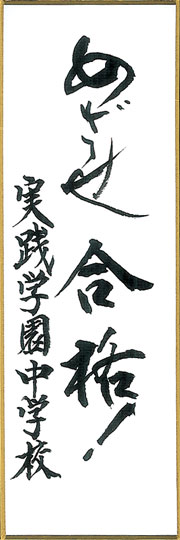 めざせ合格!
実践学園中学校